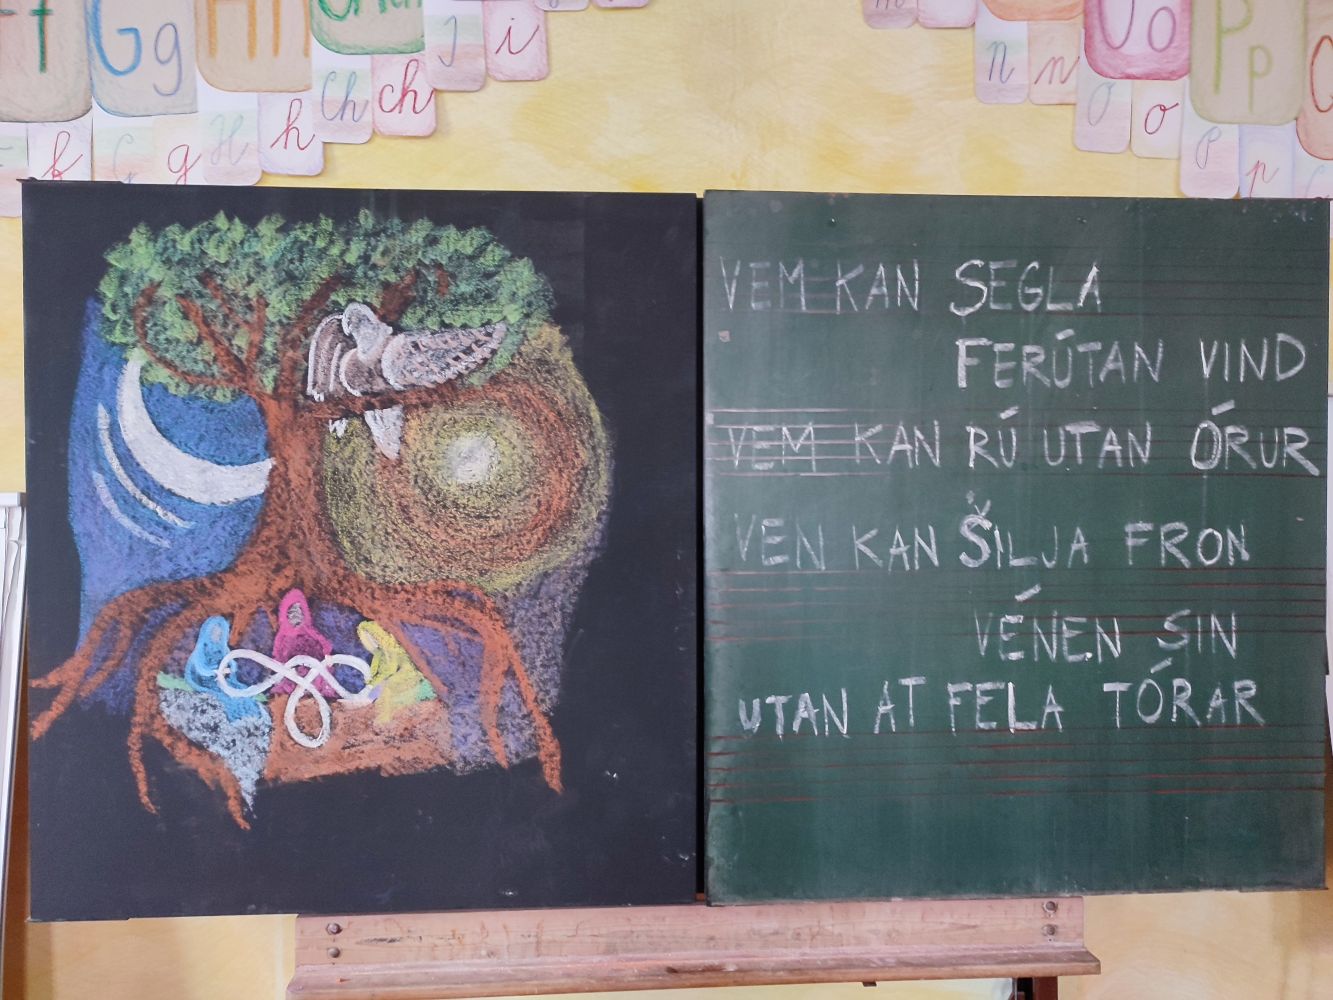 Ff Gg Hh
Ch ch I i
N n Oo Pp
f G g H h
O o P p
VEM KAN SEGLA
FERÚTAN VIND
VEM KAN RÚ UTAN ÓRUR
VEN KAN ŠILJA FRON
VÉNEN SIN
UTAN AT FELA TÓRAR